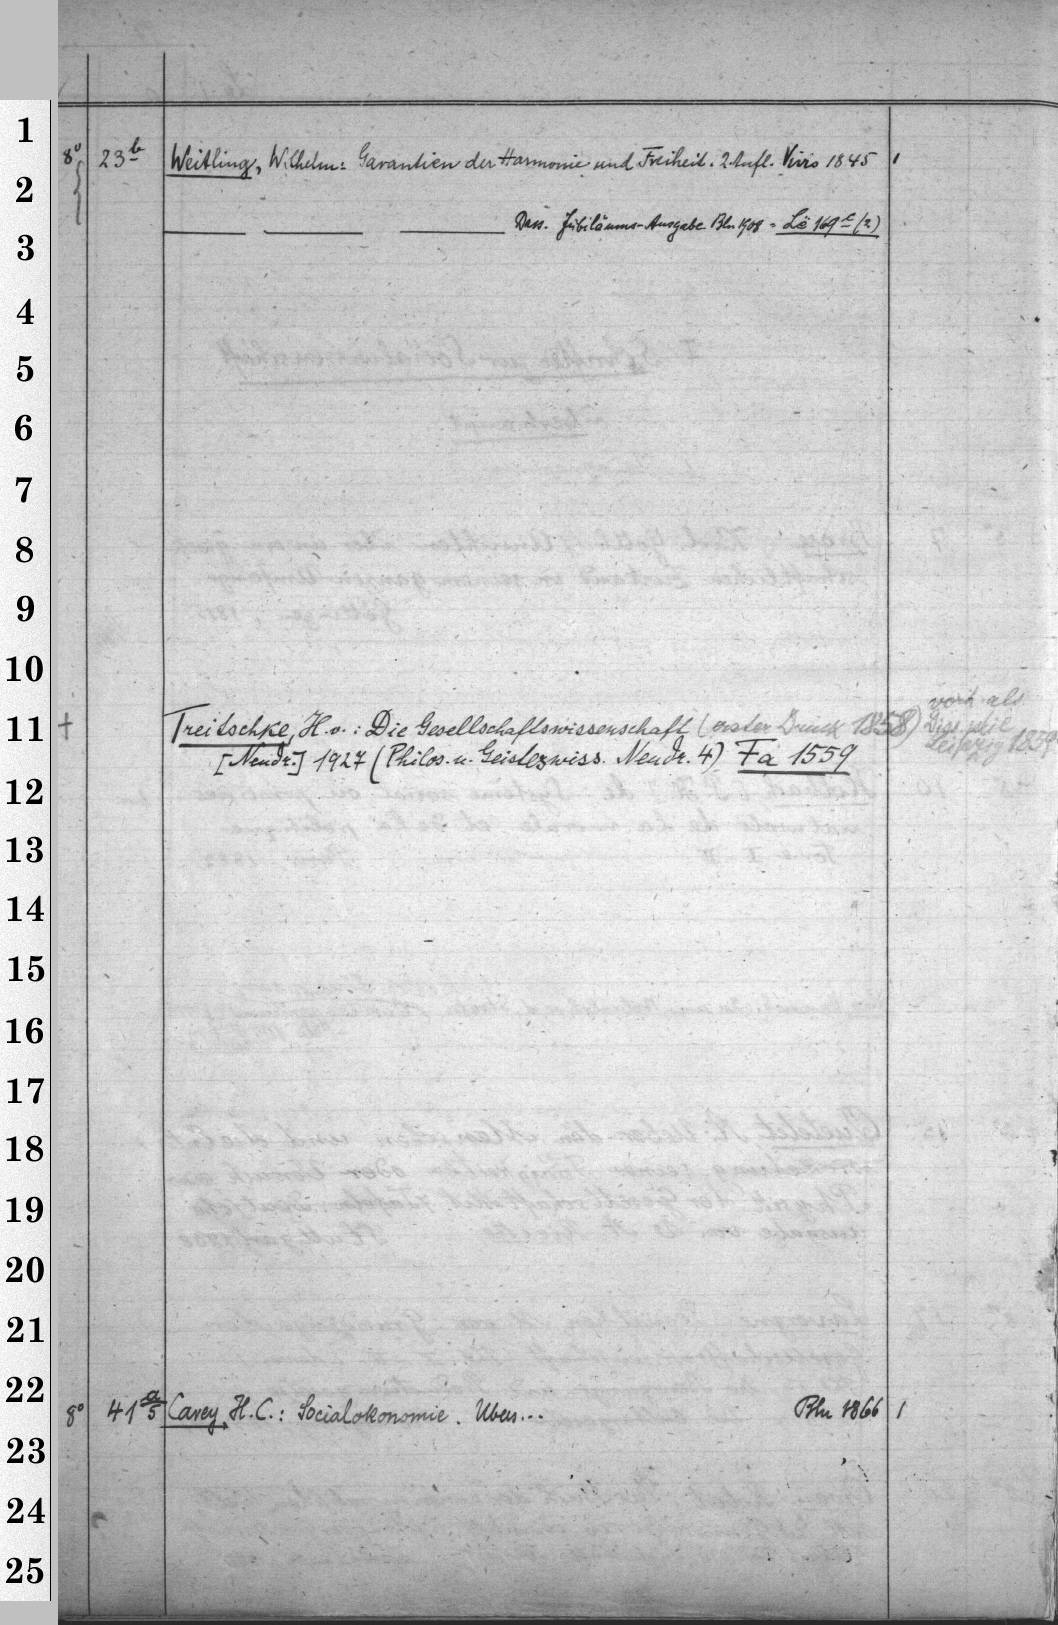 1
2
3
4
5
6
7
8
9
10
11
12
13
14
15
16
17
18
19
20
21
22
23
24
25
8° 23b Weitling, Wilhelm: Garantien der Harmonie und Freiheit. 2. Aufl. Vivis 1845 1
Dass. Jubiläums-Ausgabe Bln 1908 = Lë 169 c (2)
+ Treitschke, H.v.: Die Gesellschaftswissenschaft (erster Druck 1858) vorh. als
Diss. phil
Leipzig 1859
[Neudr.] 1927 (Philos. u. Geisteswiss. Neudr. 4) Fa 1559
8° 41 a/5 Carey, H.C.: Socialokonomie. Ubers... Bln 1866 1